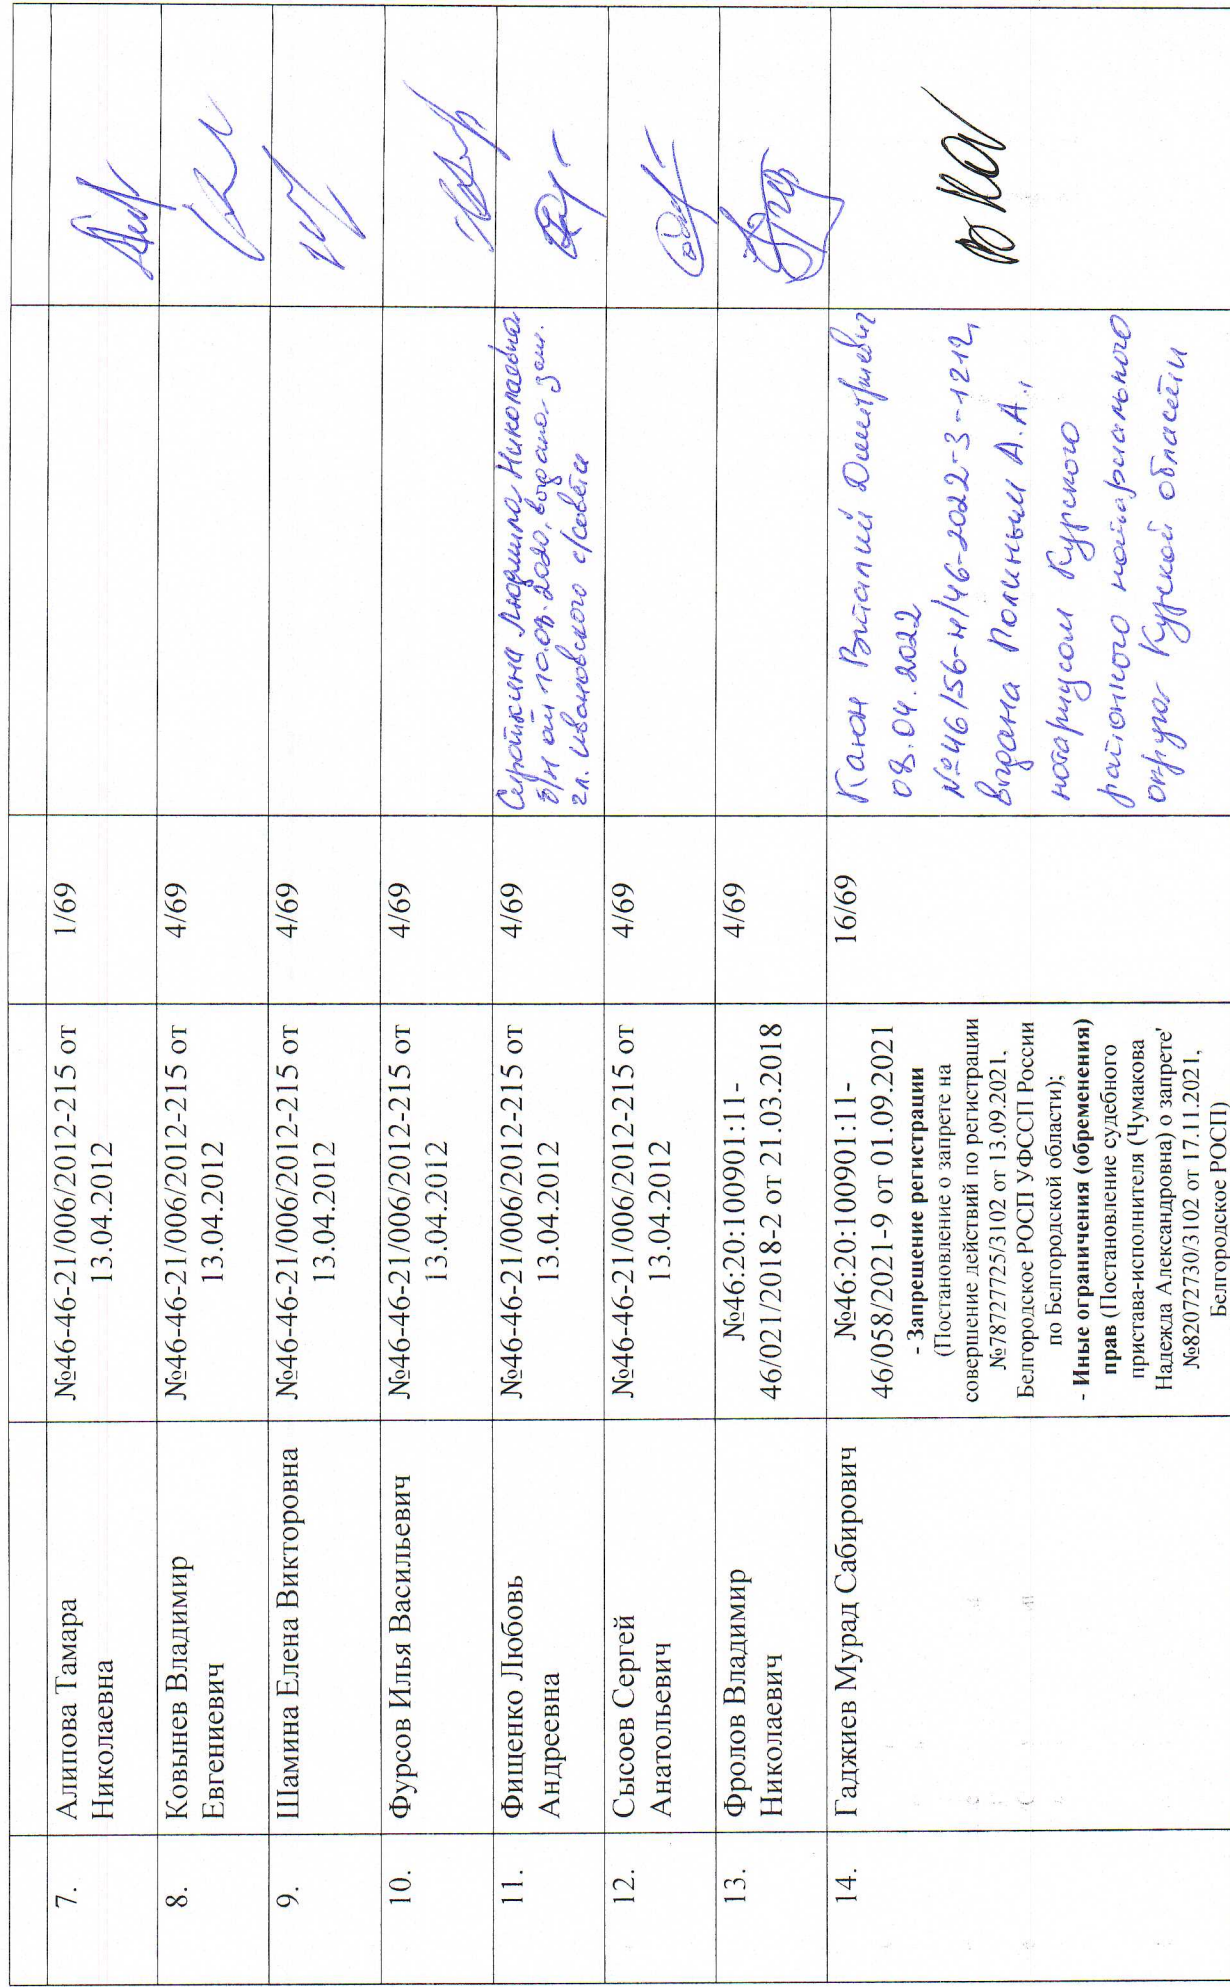 7.
Алипова Тамара
Николаевна
№46-46-21/006/2012-215 от
13.04.2012
1/69
8.
Ковынев Владимир
Евгениевич
№46-46-21/006/2012-215 от
13.04.2012
4/69
9.
Шамина Елена Викторовна
№46-46-21/006/2012-215 от
13.04.2012
4/69
10.
Фурсов Илья Васильевич
№46-46-21/006/2012-215 от
13.04.2012
4/69
11.
Фищенко Любовь
Андреевна
№46-46-21/006/2012-215 от
13.04.2012
4/69
Людмила Николаевна
б/н от 10.03.2020, выдана зам.
гл. Ивановского с/совета
12.
Сысоев Сергей
Анатольевич
№46-46-21/006/2012-215 от
13.04.2012
4/69
13.
Фролов Владимир
Николаевич
№46:20:100901:11-
46/021/2018-2 от 21.03.2018
4/69
14.
Гаджиев Мурад Сабирович
№46:20:100901:11-
46/058/2021-9 от 01.09.2021
- Запрещение регистрации
(Постановление о запрете на
совершение действий по регистрации
№78727725/3102 от 13.09.2021,
Белгородское РОСП УФССП России
по Белгородской области);
- Иные ограничения (обременения)
прав (Постановление судебного
пристава-исполнителя (Чумакова
Надежда Александровна) о запрете'
№82072730/3102 от 17.11.2021,
Белгородское РОСП)
16/69
Канон Виталий Дмитриевич
08.04.2022
№46/56-н/46-2022-3-1212,
выдана Полиным А.А.,
нотариусом Курского
районного нотариального
округа Курской области